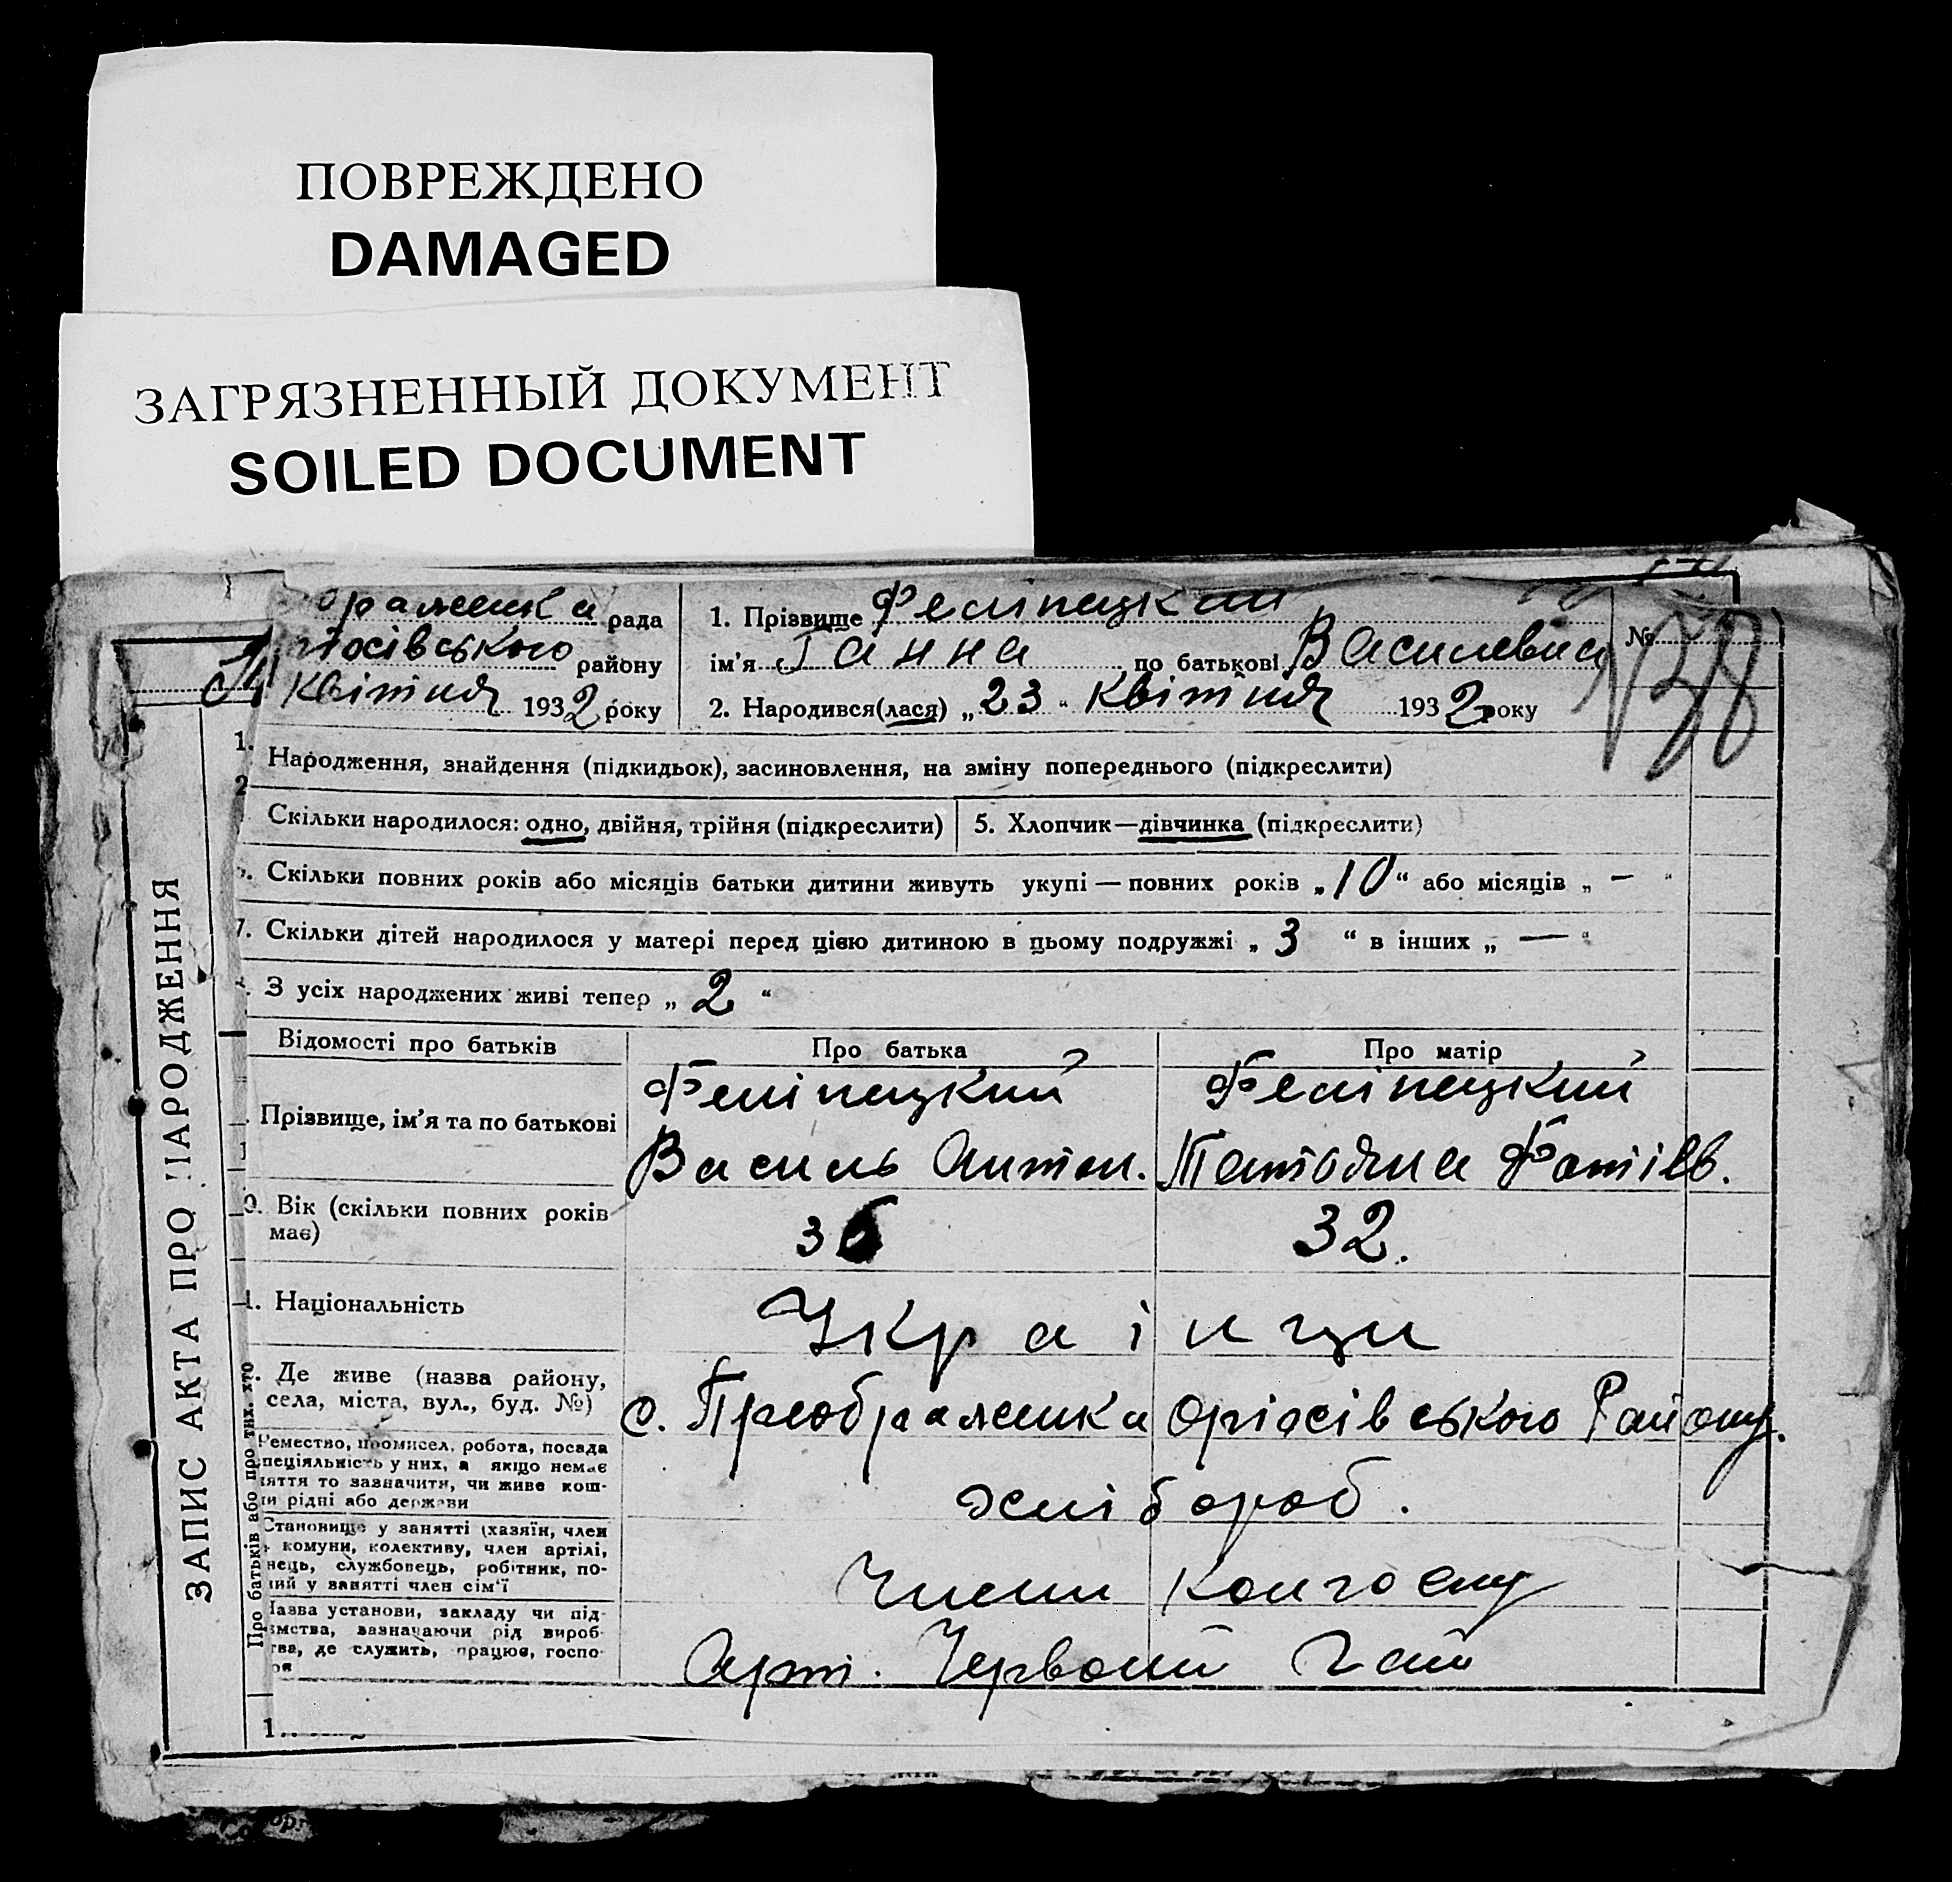 ПОВРЕЖДЕНО
DAMAGED
ЗАГРЯЗНЕННЫЙ ДОКУМЕНТ
SOILED DOCUMENT
ЗАПИС АКТА ПРО НАРОДЖЕННЯ
раженка рада
хівського району
квітня 1932 року
1. Прізвище Феліпецкий
ім'я Ганна по батькові Василевна
2. Народився(лася) „23“ квітня 1932 року
№ 138
Народження, знайдення (підкидьок), засиновлення, на зміну попереднього (підкреслити)
Скільки народилося: одно, двійня, трійня (підкреслити)
5. Хлопчик—дівчинка (підкреслити)
Скільки повних років або місяців батьки дитини живуть укупі — повних років „10“ або місяців „ — “
7. Скільки дітей народилося у матері перед цією дитиною в цьому подружжі „ 3 “ в інших „ — “
З усіх народжених живі тепер „ 2 “
Відомості про батьків
Про батька
Про матір
Прізвище, ім'я та по батькові
Феліпецкий
Василь Антон.
Феліпецкий
Татояна Фотіїв.
Вік (скільки повних років має)
36
32.
Національність
Українци
Де живе (назва району,
села, міста, вул., буд. №)
с. Преображенка Оріхівського Району.
Ремество, промисел, робота, посада
спеціяльність у них, а якщо немає
няття то зазначити, чи живе кош-
ми рідні або держави
хлібороб.
Становище у занятті (хазяїн, член
комуни, колективу, член артілі,
нець, службовець, робітник, по-
ний у занятті член сім'ї
Члени колгоспу
Назва установи, закладу чи під-
ємства, зазначаючи рід вироб-
тва, де служить, працює, госпо-
Арт. Червоний Гай
Про батьків або про тих, хто
1.